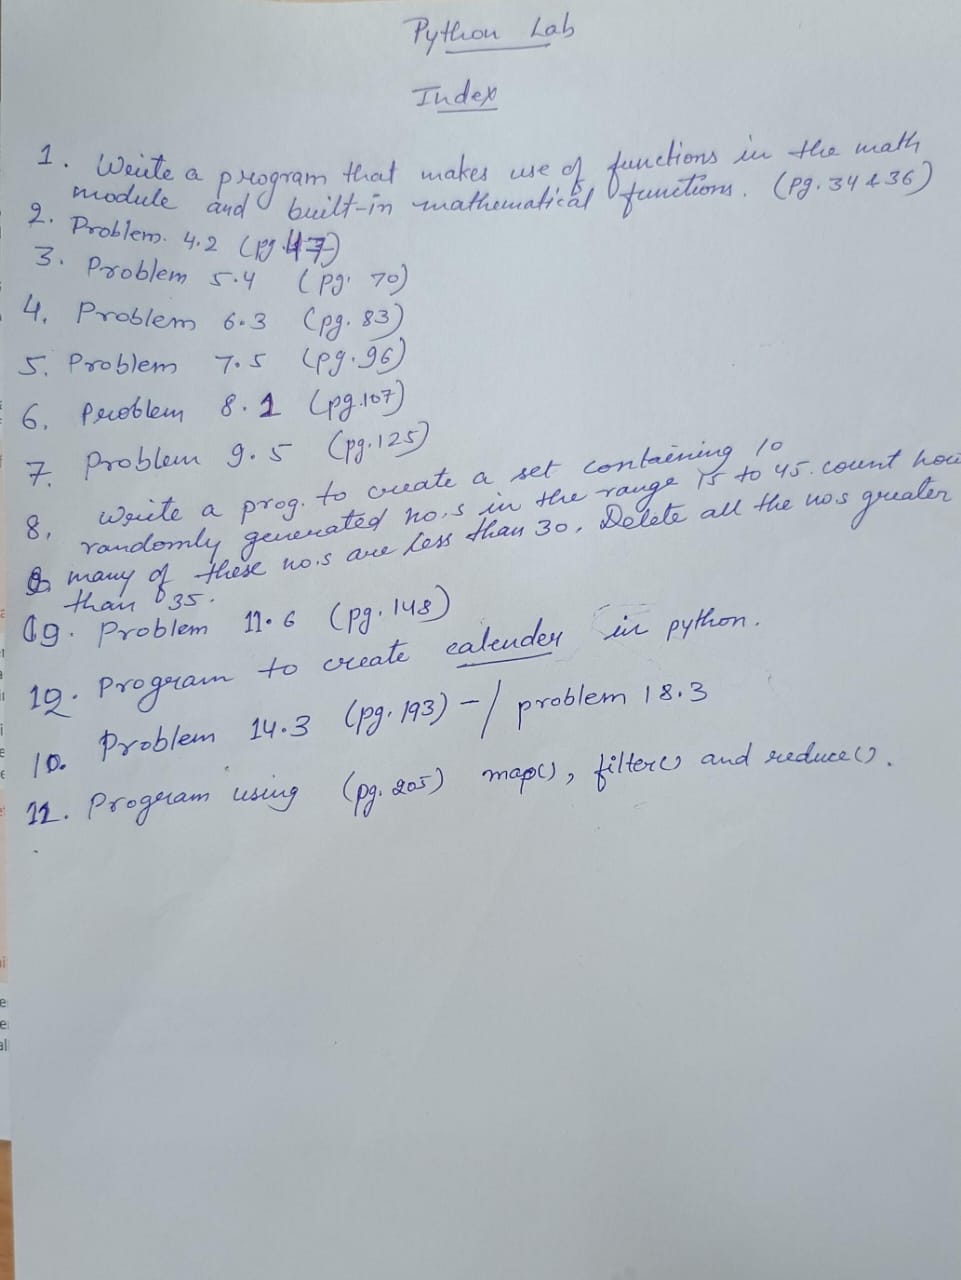 Python Lab
Index
1. Write a program that makes use of functions in the math
module and built-in mathematical functions. (Pg. 34 & 36)
2. Problem. 4.2 (pg. 47)
3. Problem 5.4 (pg. 70)
4. Problem 6.3 (pg. 83)
5. Problem 7.5 (pg. 96)
6. Problem 8.1 (pg.107)
7. Problem 9.5 (pg.125)
8. Write a prog. to create a set containing 10
randomly generated no.s in the range 15 to 45. count how
many of these no.s are less than 30. Delete all the no.s greater
than 35.
9. Problem 11.6 (pg. 148)
10. Program to create calender in python.
10. Problem 14.3 (pg. 193) - / problem 18.3
11. Program using (pg. 205) map(), filter() and reduce().